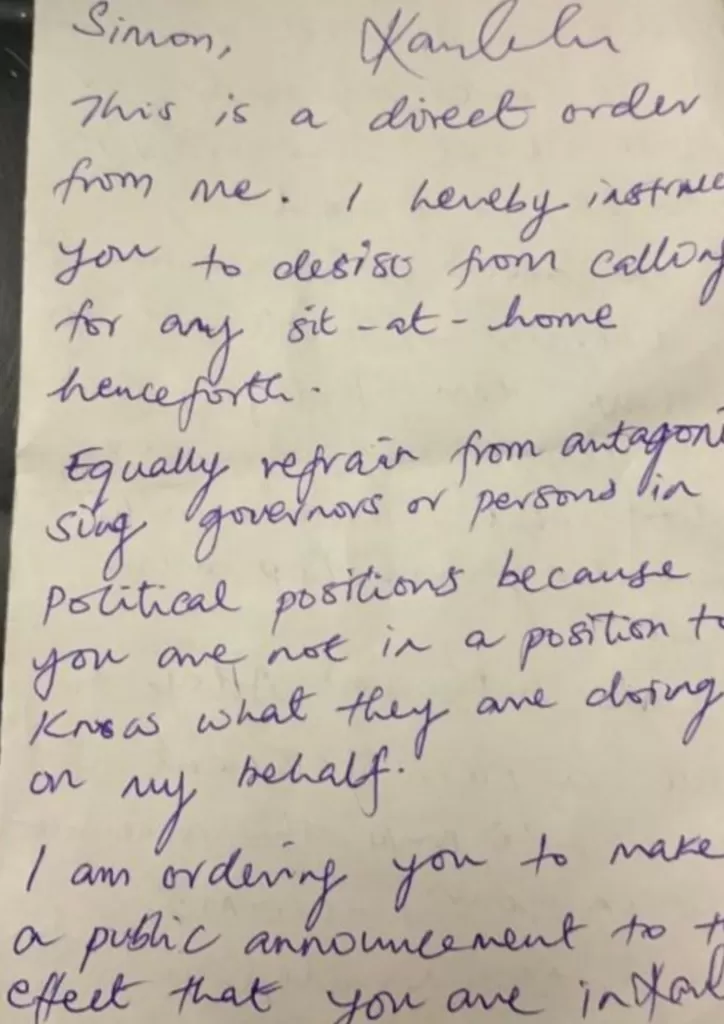 Simon,
This is a direct order
from me. I hereby instruc
you to desist from calling
for any sit-at-home
henceforth.
Equally refrain from antagoni
sing governors or persons in
Political positions because
you are not in a position to
Know what they are doing
on my behalf.
I am ordering you to make
a public announcement to t
effect that you are in